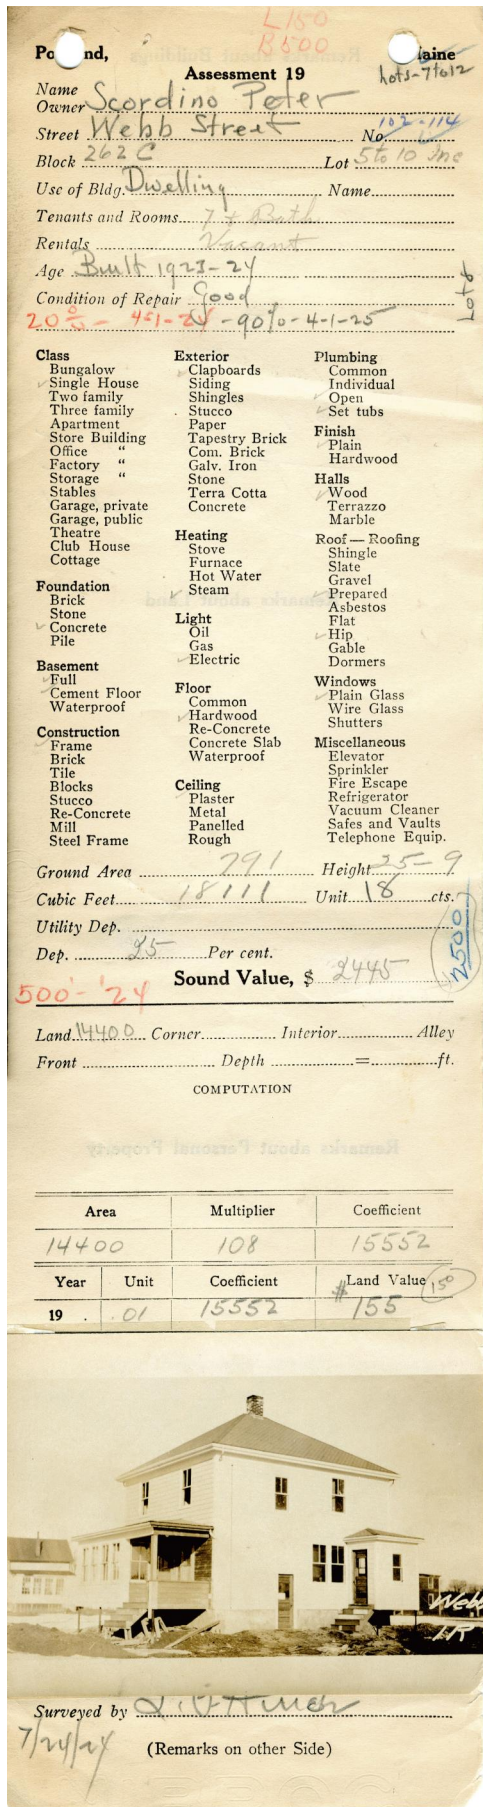 L150
B500
Po nd, aine
Assessment 19
Lots-7to12
Name
Owner Scordino Peter
Street Webb Street No 102-114
Block 262 C Lot 5 to 10 Inc
Use of Bldg. Dwelling Name
Tenants and Rooms 7 + Bath
Rentals Vacant
Age Built 1923-24
Condition of Repair Good
20% - 4-1-24 -90%-4-1-25
Class
Bungalow
Single House
Two family
Three family
Apartment
Store Building
Office "
Factory "
Storage "
Stables
Garage, private
Garage, public
Theatre
Club House
Cottage
Foundation
Brick
Stone
Concrete
Pile
Basement
Full
Cement Floor
Waterproof
Construction
Frame
Brick
Tile
Blocks
Stucco
Re-Concrete
Mill
Steel Frame
Exterior
Clapboards
Siding
Shingles
Stucco
Paper
Tapestry Brick
Com. Brick
Galv. Iron
Stone
Terra Cotta
Concrete
Heating
Stove
Furnace
Hot Water
Steam
Light
Oil
Gas
Electric
Floor
Common
Hardwood
Re-Concrete
Concrete Slab
Waterproof
Ceiling
Plaster
Metal
Panelled
Rough
Plumbing
Common
Individual
Open
Set tubs
Finish
Plain
Hardwood
Halls
Wood
Terrazzo
Marble
Roof — Roofing
Shingle
Slate
Gravel
Prepared
Asbestos
Flat
Hip
Gable
Dormers
Windows
Plain Glass
Wire Glass
Shutters
Miscellaneous
Elevator
Sprinkler
Fire Escape
Refrigerator
Vacuum Cleaner
Safes and Vaults
Telephone Equip.
Ground Area 791 Height 25-9
Cubic Feet 18111 Unit 18 cts.
Utility Dep.
Dep. 25 Per cent.
2500
Sound Value, $ 2445
500 - '24
Land 14400 Corner Interior Alley
Front Depth = ft.
COMPUTATION
Area Multiplier Coefficient
14400 108 15552
Year Unit Coefficient Land Value 150
19 .01 15552 $155
Webb
Surveyed by
7/24/24
(Remarks on other Side)